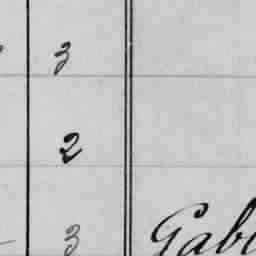 3
2
3 Gab